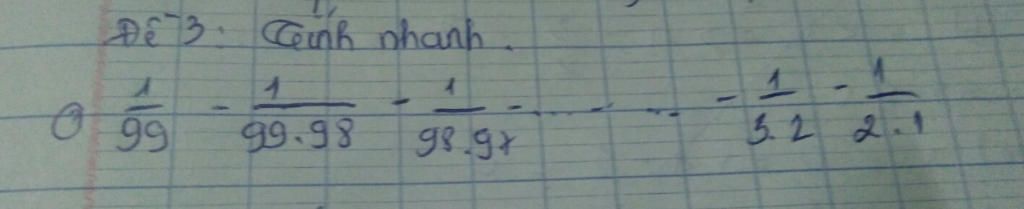 Đề 3: Tính nhanh.
1/99 - 1/99.98 - 1/98.97 - ... - ... - 1/3.2 - 1/2.1